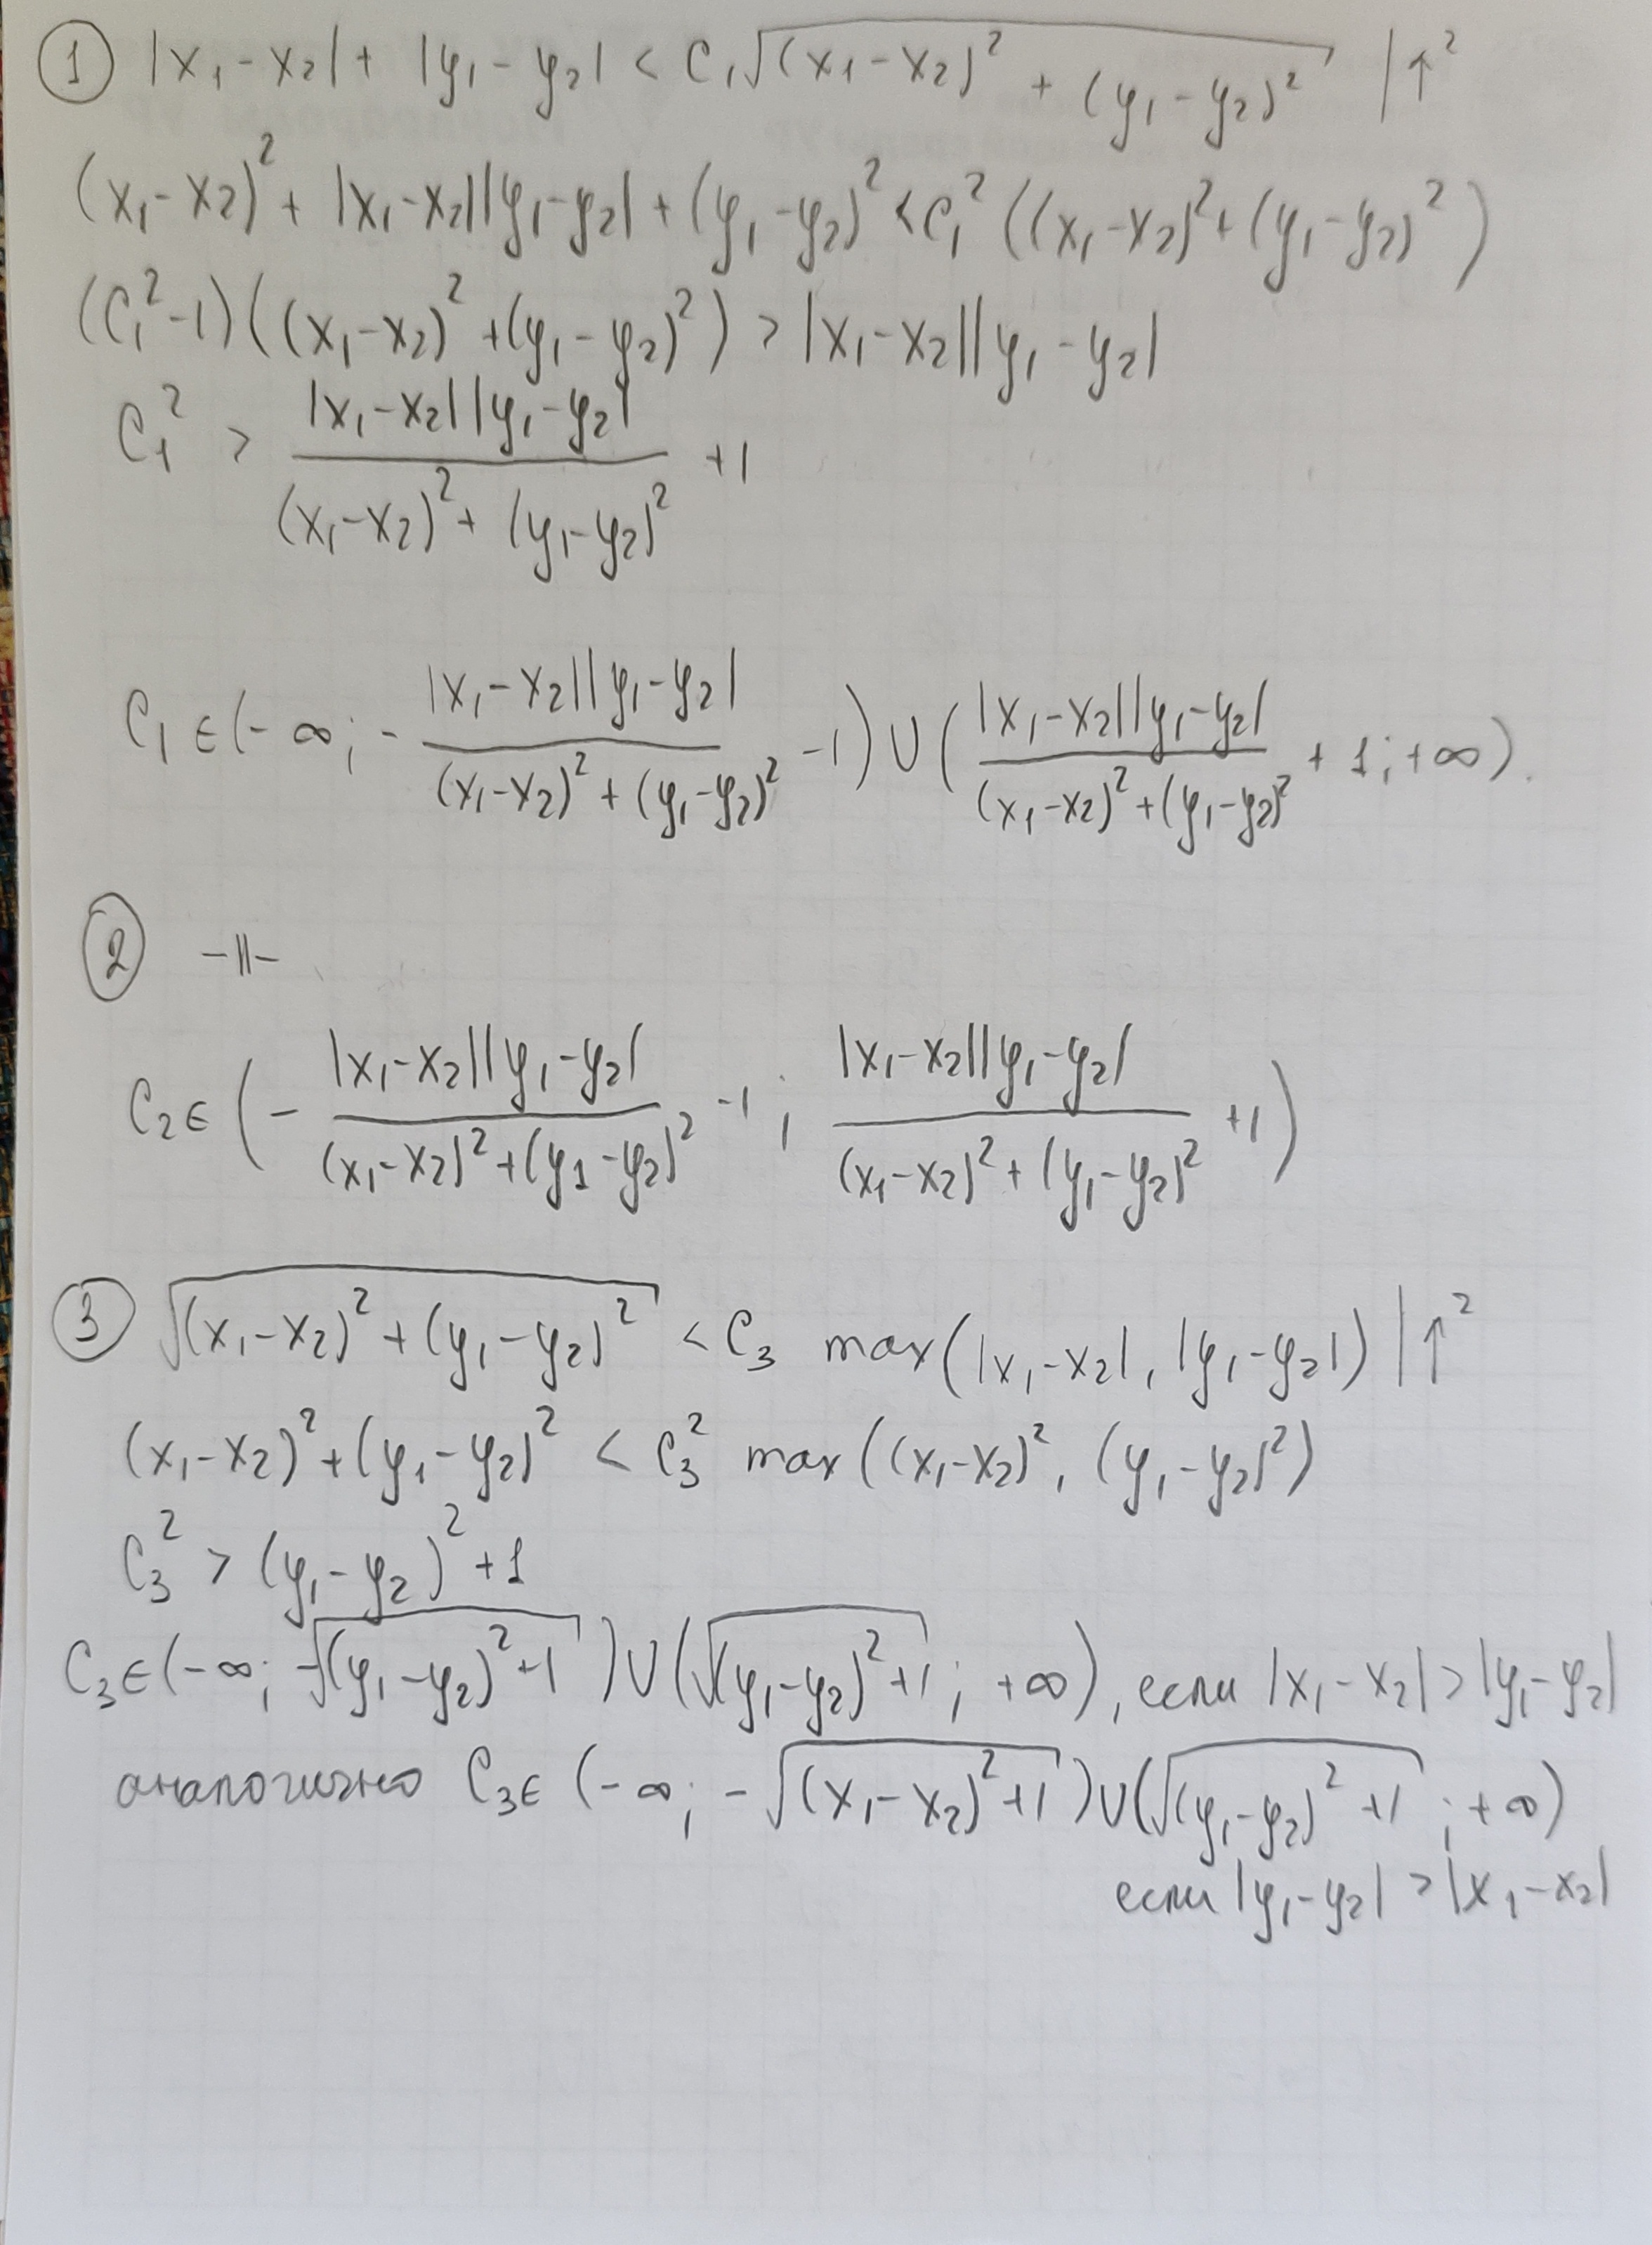 ① |x₁ - x₂| + |y₁ - y₂| < C₁√((x₁ - x₂)² + (y₁ - y₂)²) |↑²
(x₁ - x₂)² + |x₁ - x₂||y₁ - y₂| + (y₁ - y₂)² < C₁² ((x₁ - x₂)² + (y₁ - y₂)²)
(C₁² - 1)((x₁ - x₂)² + (y₁ - y₂)²) > |x₁ - x₂||y₁ - y₂|
C₁² > |x₁ - x₂||y₁ - y₂| / ((x₁ - x₂)² + (y₁ - y₂)²) + 1
C₁ ∈ (-∞; - |x₁ - x₂||y₁ - y₂| / ((x₁ - x₂)² + (y₁ - y₂)²) - 1) ∪ (|x₁ - x₂||y₁ - y₂| / ((x₁ - x₂)² + (y₁ - y₂)²) + 1; +∞).
② -||-
C₂ ∈ (- |x₁ - x₂||y₁ - y₂| / ((x₁ - x₂)² + (y₁ - y₂)²) - 1; |x₁ - x₂||y₁ - y₂| / ((x₁ - x₂)² + (y₁ - y₂)²) + 1)
③ √((x₁ - x₂)² + (y₁ - y₂)²) < C₃ max(|x₁ - x₂|, |y₁ - y₂|) |↑²
(x₁ - x₂)² + (y₁ - y₂)² < C₃² max((x₁ - x₂)², (y₁ - y₂)²)
C₃² > (y₁ - y₂)² + 1
C₃ ∈ (-∞; -√((y₁ - y₂)² + 1)) ∪ (√((y₁ - y₂)² + 1); +∞), если |x₁ - x₂| > |y₁ - y₂|
аналогично C₃ ∈ (-∞; -√((x₁ - x₂)² + 1)) ∪ (√((y₁ - y₂)² + 1); +∞)
если |y₁ - y₂| > |x₁ - x₂|